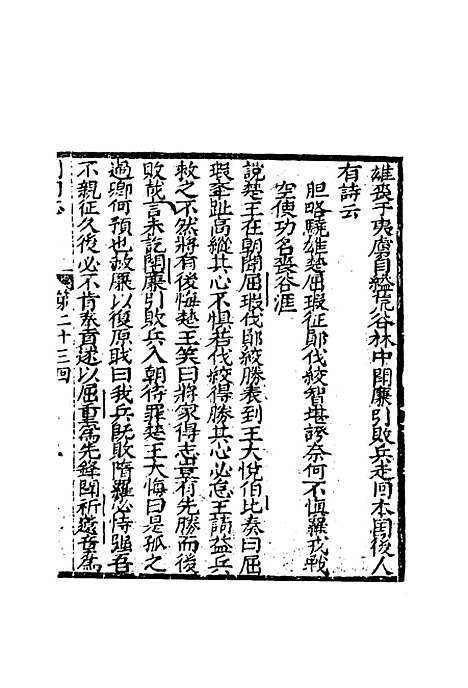 雄喪于夷虜自縊荒谷林中閗廉引敗兵走囬本国後人
有詩云
胆略驍雄楚屈瑕征鄖伐絞智堪誇奈何不慎羅戎戰
空使功名喪谷涯
説楚王在朝聞屈瑕伐鄖絞勝表到王大悦伯比奏曰屈
瑕奉趾高縱其心不惧若伐絞得勝其心必怠王請益兵
救之不然将有後悔楚王笑曰将家得志豈有先勝而後
敗哉言未訖閗廉引敗兵入朝待罪楚王大悔曰是孤之
過卿何預也故廉以復原䏁曰我兵既敗隋羅必恃强吾
不親征久後必不肯奉貢遂以屈重為先鋒閗祈薳章為
第二十三囬